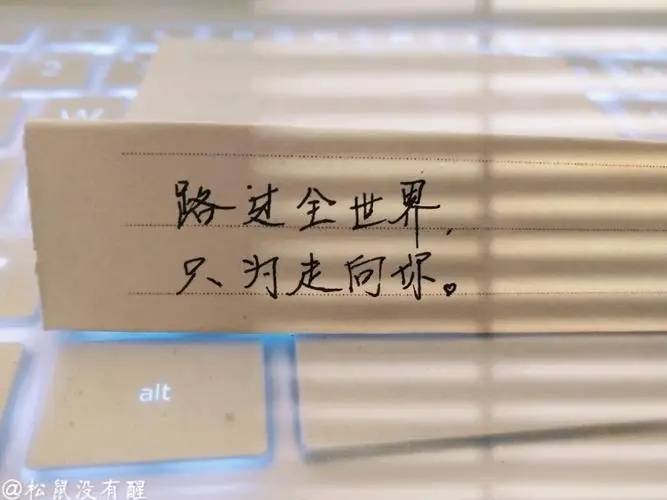 路过全世界,
只为走向你。
alt
@松鼠没有醒